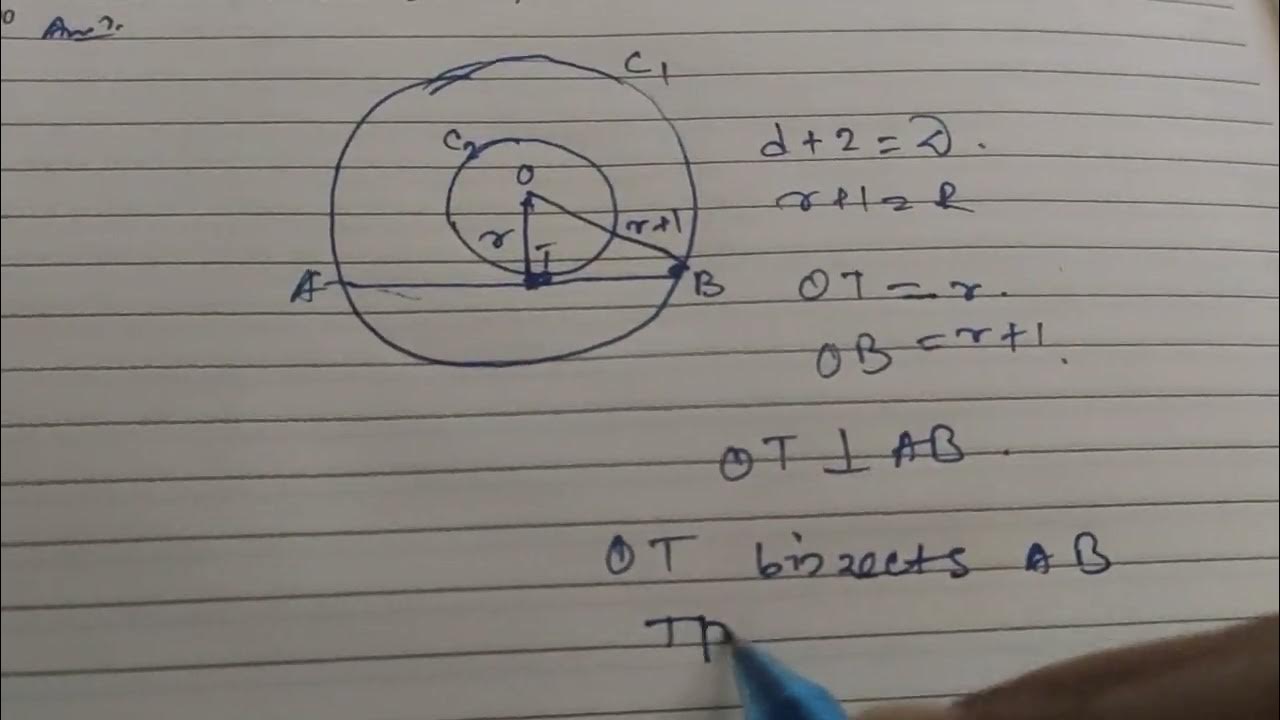 Ans.
C1
C2
O
r
r+1
T
A
B
d + 2 = D.
r+1 = R
OT = r.
OB = r+1.
OT ⊥ AB.
OT bisects AB